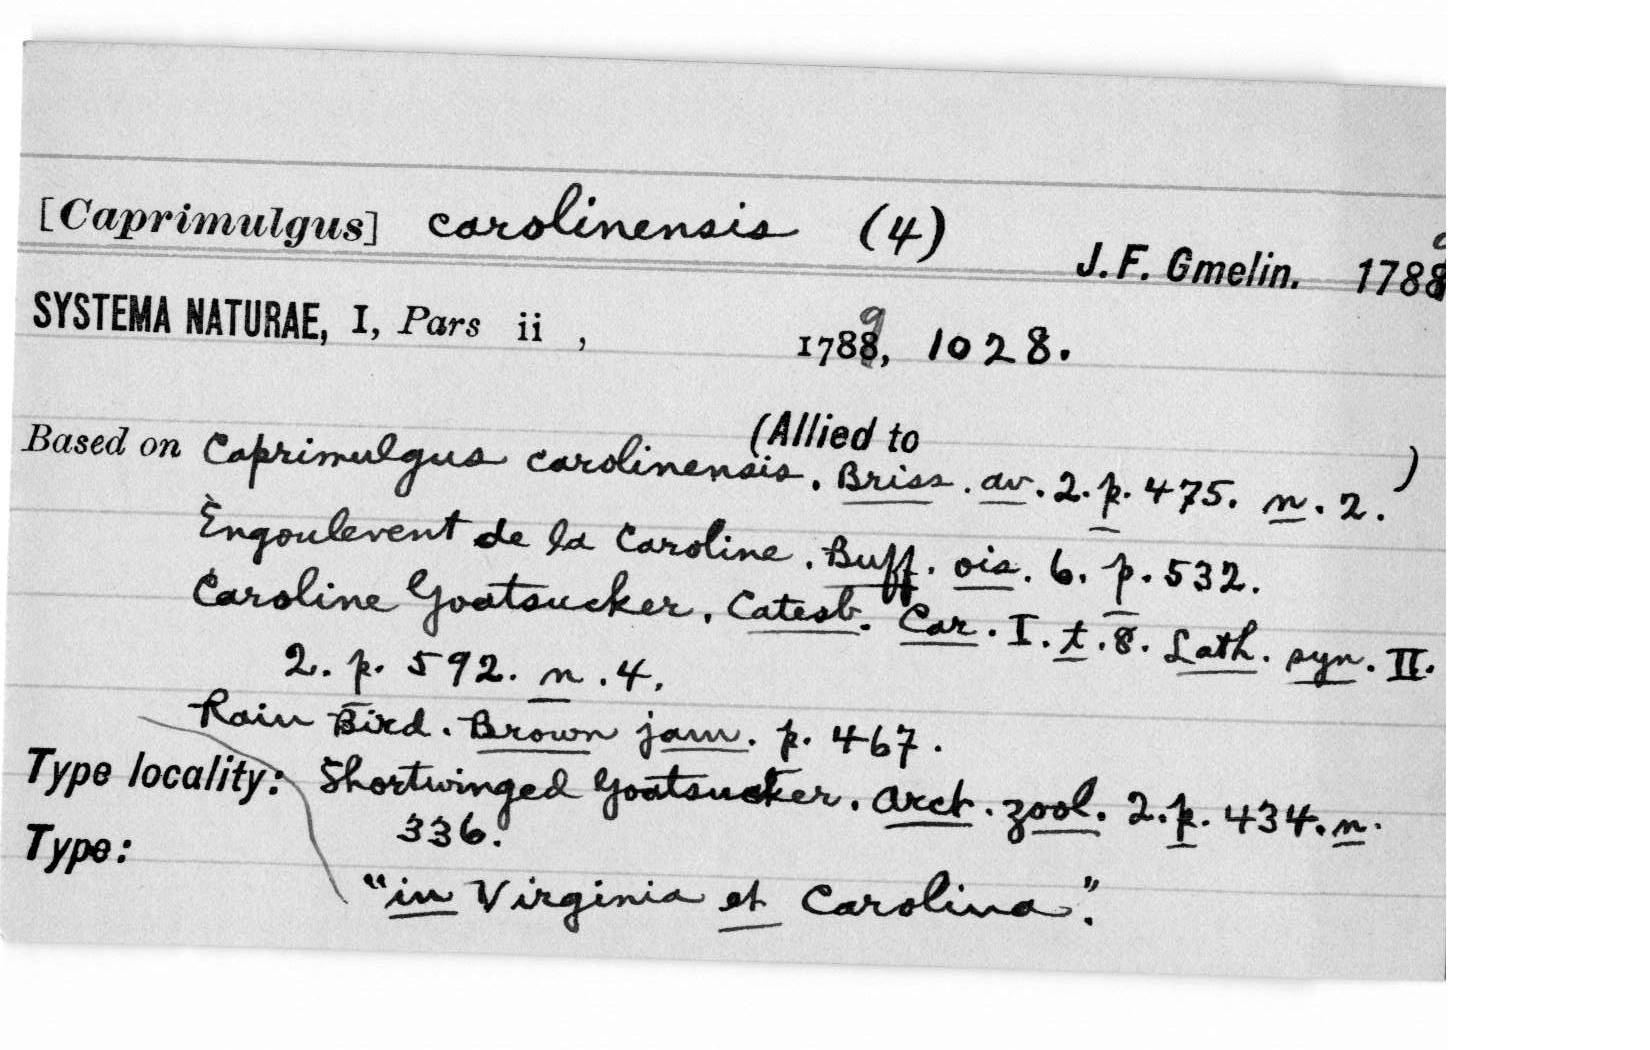 [Caprimulgus] carolinensis (4)
J. F. Gmelin. 1789
SYSTEMA NATURAE, I, Pars ii , 1789, 1028.
(Allied to )
Based on Caprimulgus carolinensis. Briss. av. 2. p. 475. n. 2.
Èngoulevent de la Caroline. Buff. ois. 6. p. 532.
Caroline Goatsucker. Catesb. Car. I. t. 8. Lath. syn. II.
2. p. 592. n. 4.
Rain Bird. Brown jam. p. 467.
Type locality: Shortwinged Goatsucker. Arct. zool. 2. p. 434. n.
336.
Type:
"in Virginia et Carolina".